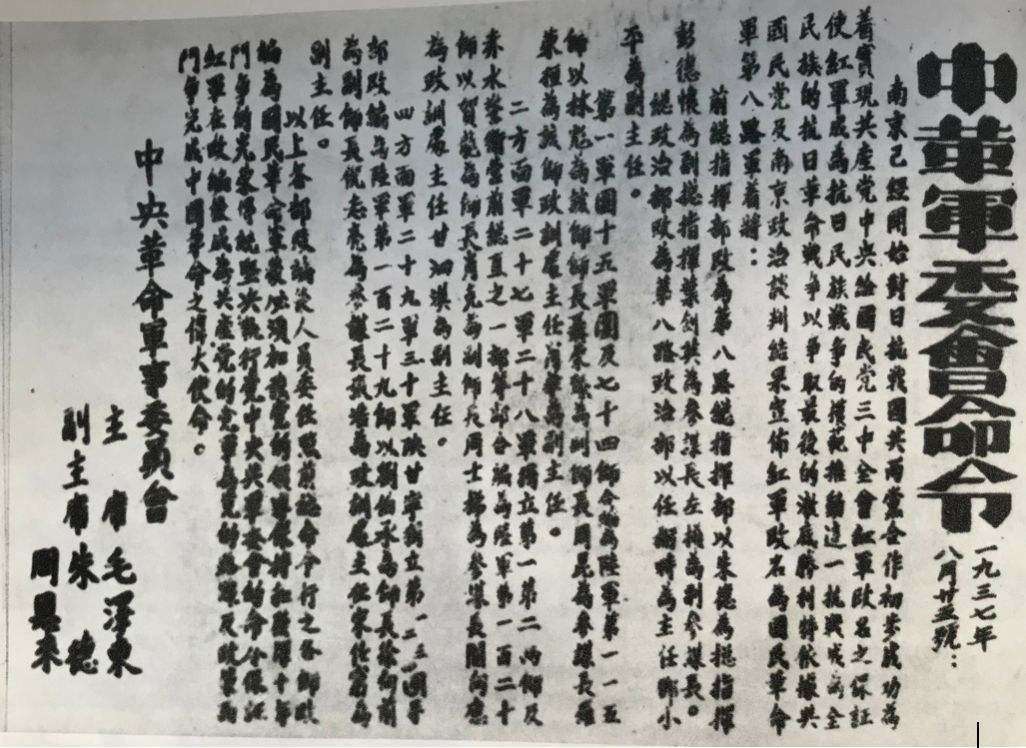 中革軍委會命令
一九三七年
八月廿五號：
南京已經開始對日抗戰國共兩黨合作初步成功為
着實現共產党中央給國民党三中全會紅軍改名之保証
使紅軍成為抗日民族戰爭的模範推動這一抗戰成為全
民族的抗日革命戰爭以爭取最後的澈底勝利特依據共
國民党及南京政治談判結果宣佈紅軍改名為國民革命
軍第八路軍着將：
前總指揮部改為第八路總指揮部以朱德為總指揮
彭德懷為副總指揮葉劍英為參謀長左權為副參謀長。
總政治部改為第八路政治部以任弼時為主任鄧小
平為副主任。
第一軍團十五軍團及七十四師合編為陸軍第一一五
師以林彪為該師師長聶榮臻為副師長周昆為參謀長羅
榮桓為該師政訓處主任蕭華為副主任。
二方面軍二十七軍二十八軍獨立第一第二兩師及
赤水警衛營前總直之一部等部合編為陸軍第一百二十
師以賀龍為師長肖克為副師長周士梯為參謀長關向應
為政訓處主任甘泗淇為副主任。
四方面軍二十九軍三十軍陝甘寧獨立第一二三四團等
部改編為陸軍第一百二十九師以劉伯承為師長徐向前
為副師長倪志亮為參謀長張浩為政訓處主任宋任窮為
副主任。
以上各部改編後人員委任照前總命令行之各師改
編為國民革命軍後必須加強党的領導保持和發揚十年
鬥爭的光榮傳統堅決執行党中央與軍委會的命令保証
紅軍在改編後成為共產党的党軍為党的路線及政策而
鬥爭完成中國革命之偉大使命。
中央革命軍事委員會
主席毛澤東
副主席朱德
周恩來